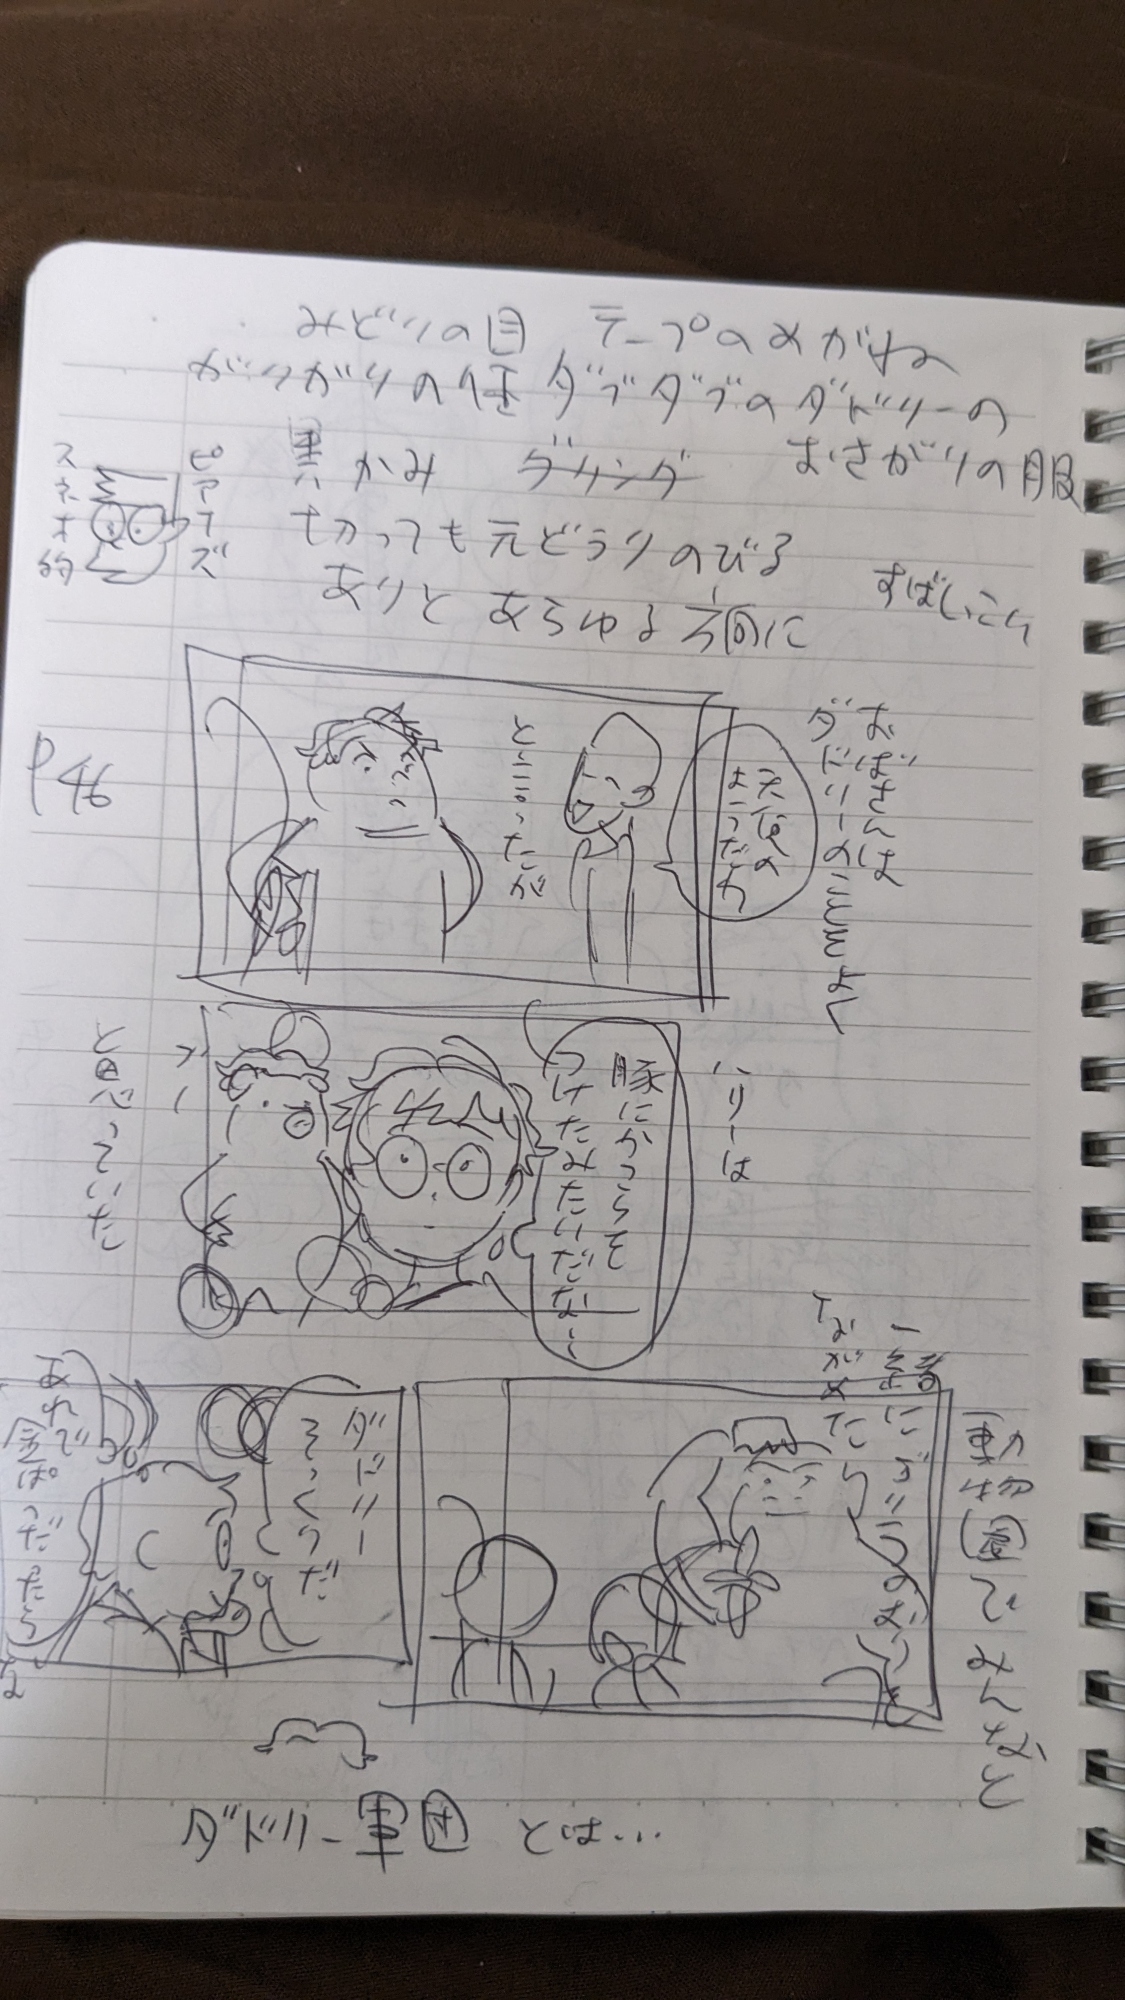 みどりの目 テープのめがね
がりがりの体 ダブダブのダドリーの
おさがりの服
黒かみ
切っても元どうりのびる
すばしっこい
ありとあらゆる方向に
ピアーズ
スネオ的
P46
おばさんは
ダドリーのことを
天使の
ようだわ
と言ったが
ハリーは
豚にかつらを
つけたみたいだな〜
と思っていた
動物園でみんなと
一緒にゴリラのおりを
ながめた
ダドリー
そっくりだ
あれで
金ぱつだったら
な
ダドリー軍団 とは…